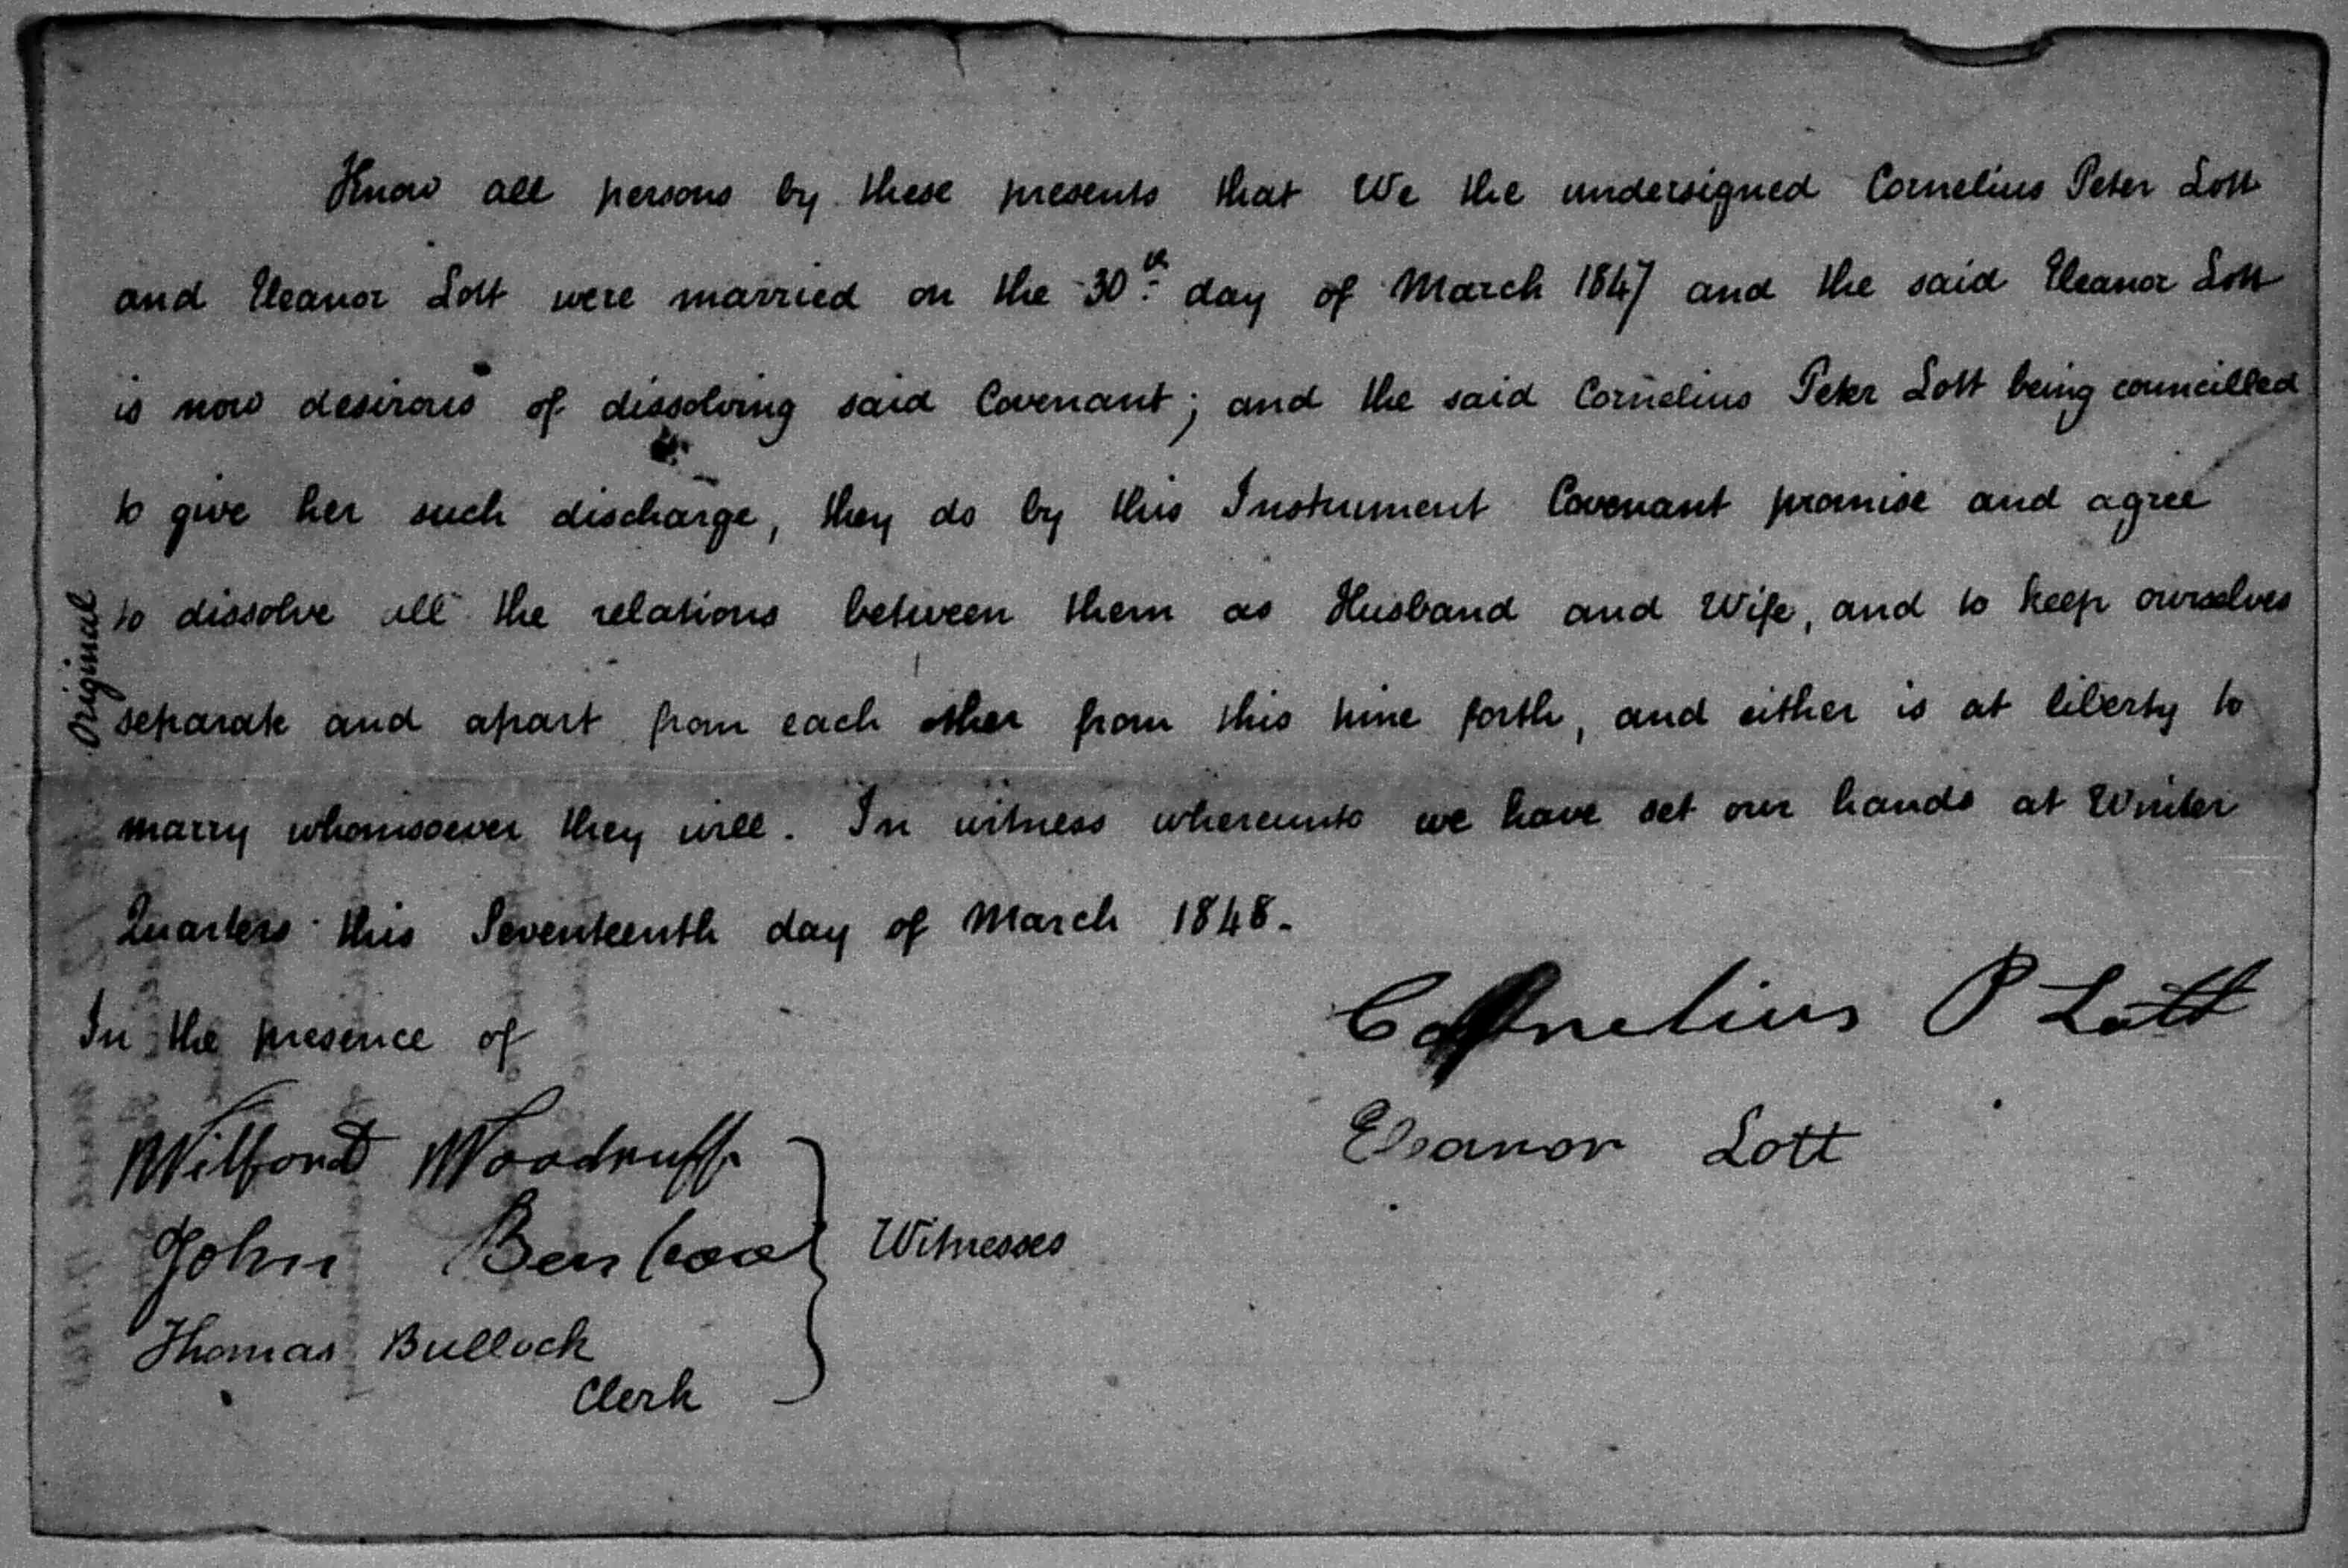 Know all persons by these presents that We the undersigned Cornelius Peter Lott
and Eleanor Lott were married on the 30th day of March 1847 and the said Eleanor Lott
is now desirous of dissolving said Covenant; and the said Cornelius Peter Lott being councilled
to give her such discharge, they do by this Instrument Covenant promise and agree
to dissolve all the relations between them as Husband and Wife, and to keep ourselves
separate and apart from each other from this time forth, and either is at liberty to
marry whomsoever they will. In witness whereunto we have set our hands at Winter
Quarters this Seventeenth day of March 1848.
Original
Cornelius P Lott
Eleanor Lott
In the presence of
Wilford Woodruff
John Benbow
Witnesses
Thomas Bullock
Clerk